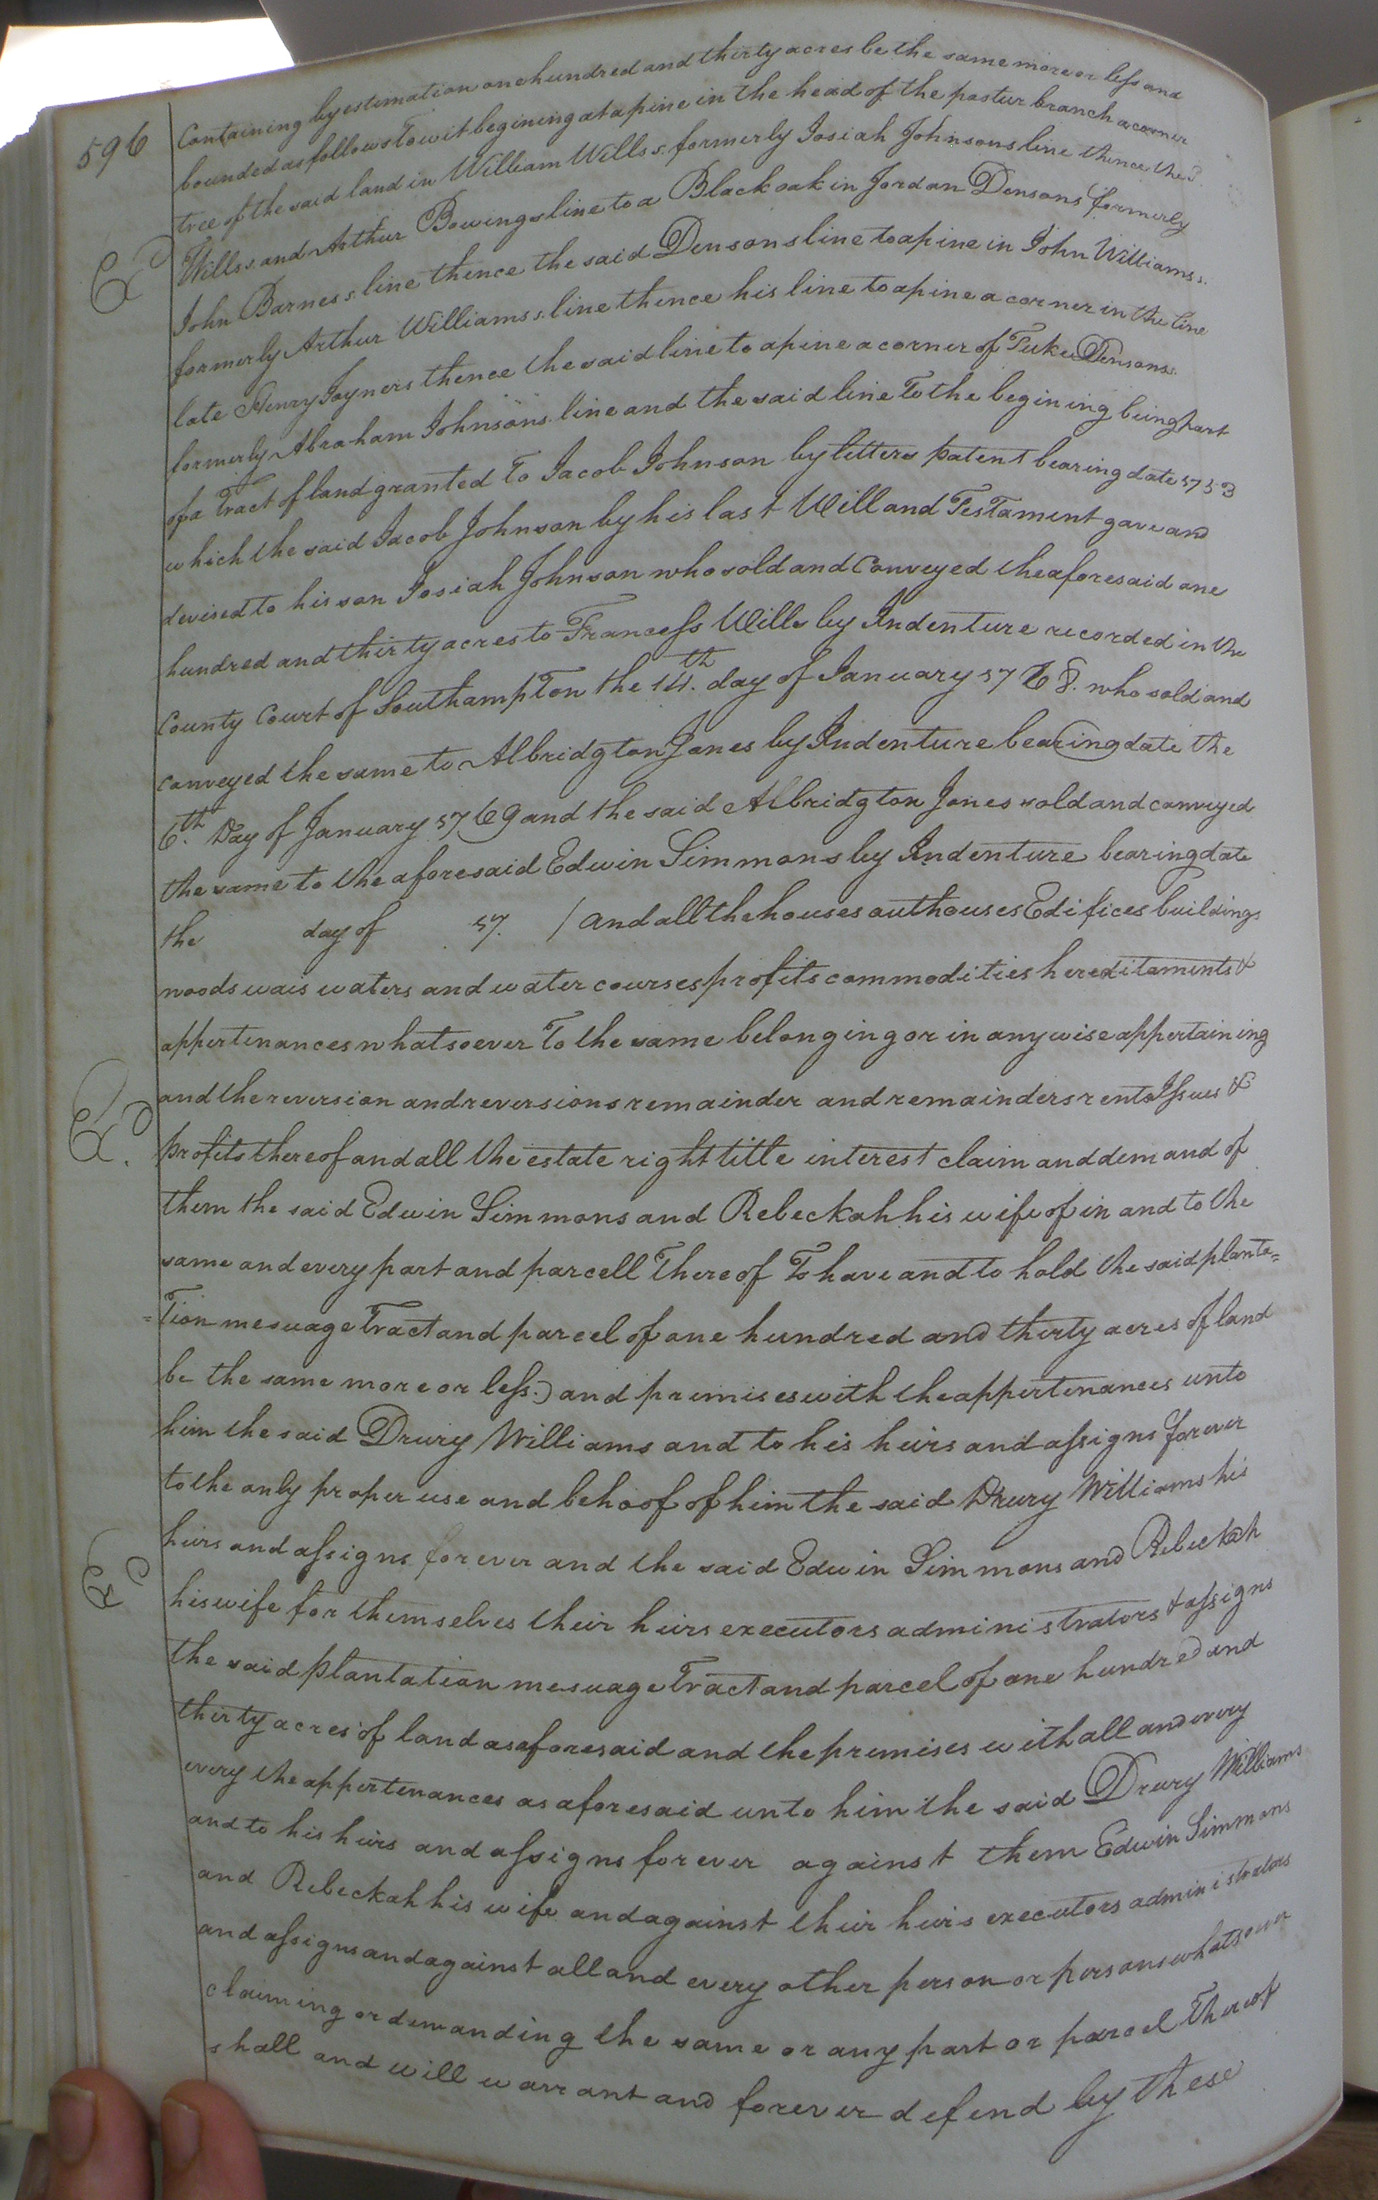 596
Containing by estimation one hundred and thirty acres be the same more or less and
bounded as follows To wit begining at a pine in the head of the pastur branch a corner
tree of the said land in William Wills's formerly Josiah Johnsons line thence the sd
Wills's and Arthur Bowings line to a Black oak in Jordan Densons formerly
John Barness's line thence the said Densons line to a pine in John Williams's
formerly Arthur Williams's line thence his line to a pine a corner in the line
late Henry Joyners thence the said line to a pine a corner of Tuke Densons
formerly Abraham Johnsons line and the said line To the begining being part
of a Tract of land granted To Jacob Johnson by letters patent bearing date
which the said Jacob Johnson by his last Will and Testament gave and
devised to his son Josiah Johnson who sold and Conveyed the aforesaid one
hundred and thirty acres to Francess Wills by Indenture recorded in the
County Court of Southampton the 14.th day of January 1768. who sold and
conveyed the same to Albridgton Jones by Indenture bearing date the
6.th Day of January 1769 and the said Albridgton Jones sold and conveyed
the same to the aforesaid Edwin Simmons by Indenture bearing date
the day of 17. / and all the houses outhouses Edifices buildings
woods wais waters and water courses profits commodities hereditaments &
appertenances whatsoever To the same belonging or in anywise appertaining
and the reversion and reversions remainder and remainders rents Issues &
profits thereof and all the estate right title interest claim and demand of
them the said Edwin Simmons and Rebeckah his wife of in and to the
same and every part and parcell Thereof To have and to hold the said planta=
=Tion mesuage Tract and parcel of one hundred and thirty acres of land
be the same more or less.) and premises with the appertenances unto
him the said Drury Williams and to his heirs and assigns forever
to the only proper use and behoof of him the said Drury Williams his
heirs and assigns forever and the said Edwin Simmons and Rebeckah
his wife for themselves their heirs executors administrators & assigns
the said plantation mesuage Tract and parcel of one hundred and
thirty acres of land as aforesaid and the premises with all and every
every the appertenances as aforesaid unto him the said Drury Williams
and to his heirs and assigns forever against them Edwin Simmons
and Rebeckah his wife and against their heirs executors administrators
and assigns and against all and every other person or persons whatsoever
claiming or demanding the same or any part or parcel Thereof
shall and will warrant and forever defend by these